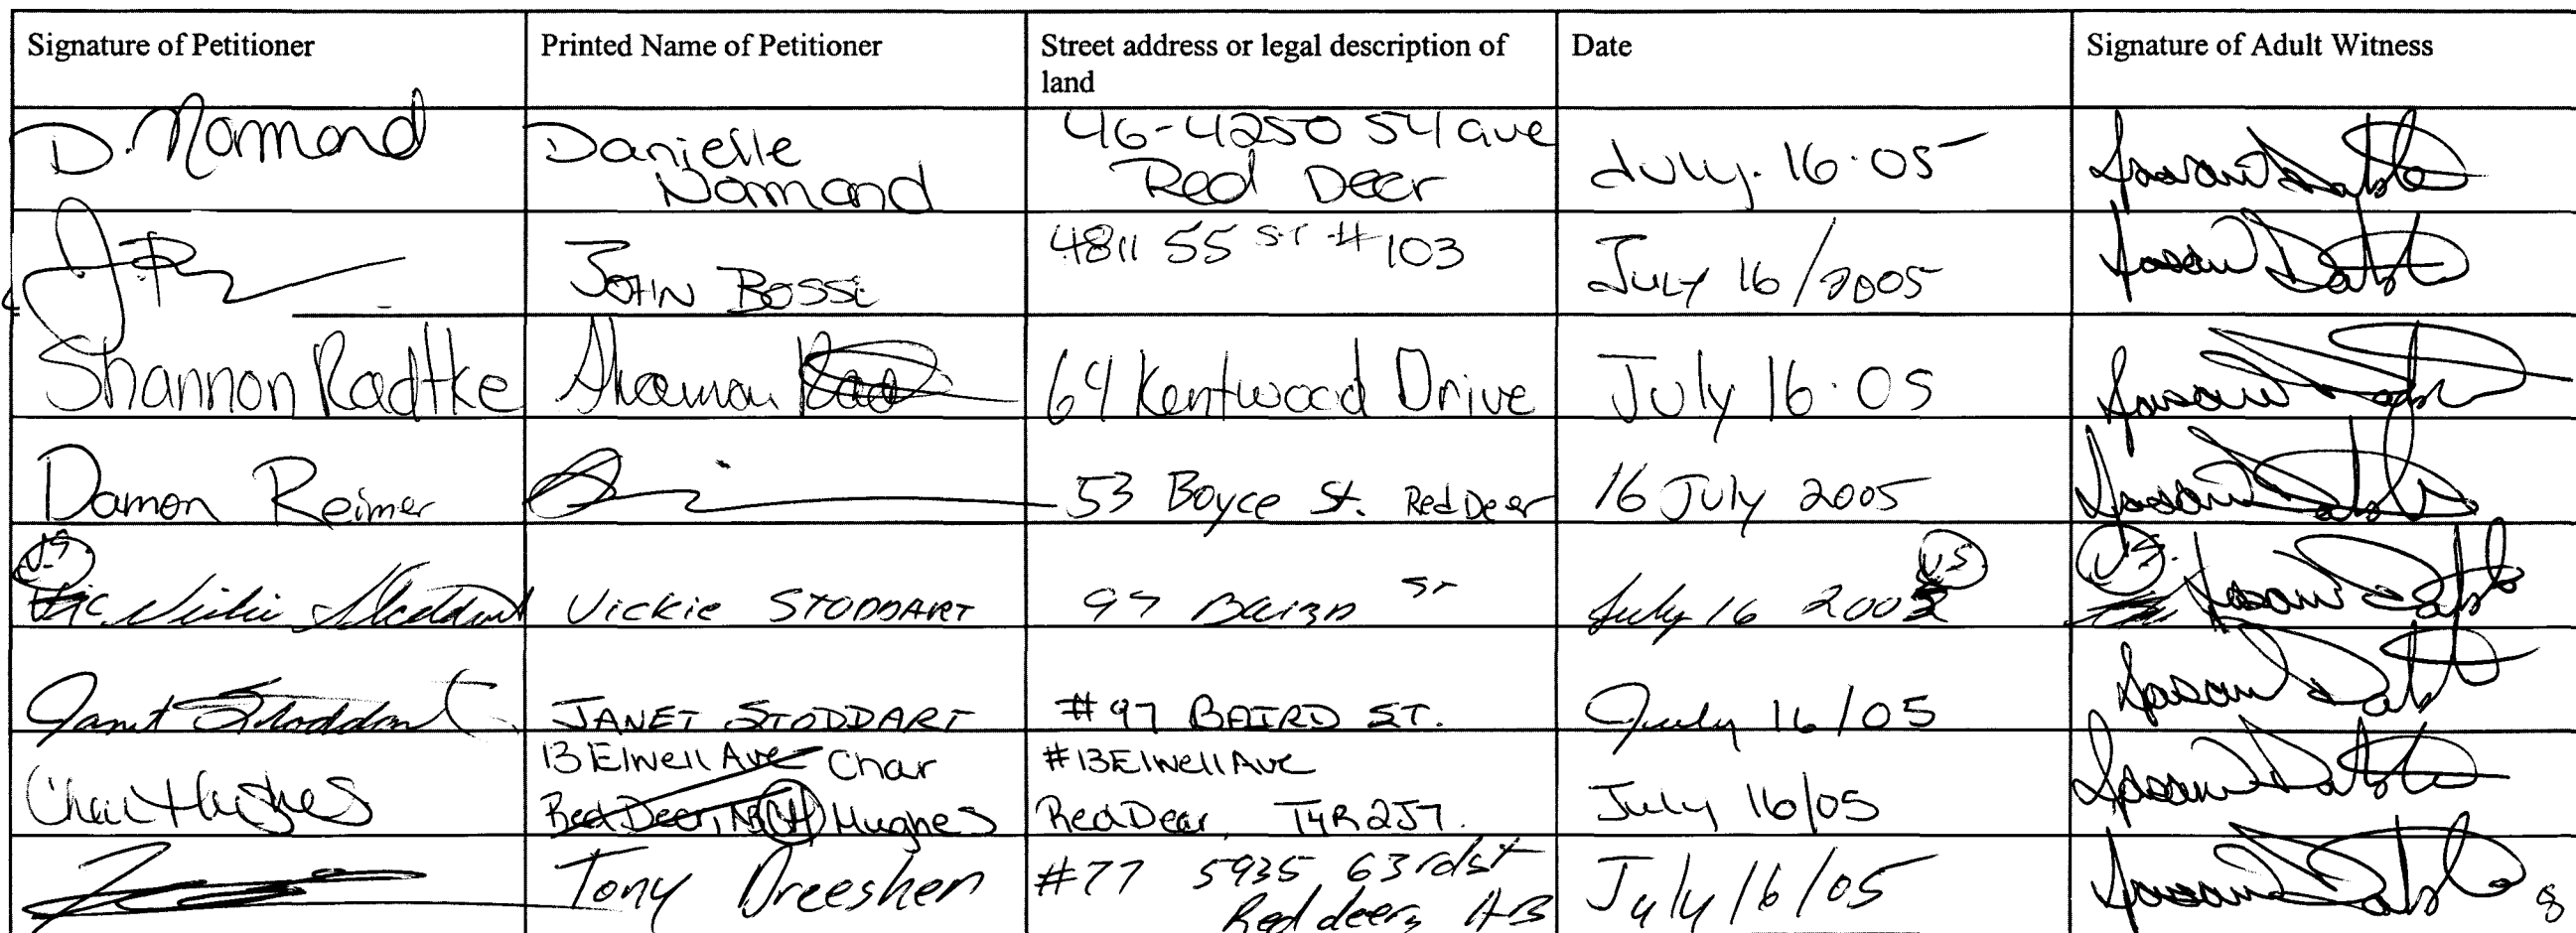 Signature of Petitioner
Printed Name of Petitioner
Street address or legal description of
land
Date
Signature of Adult Witness
D. Normand
Danielle
Normand
46-4250 54 ave
Red Deer
July. 16.05
JOHN BOSSE
4811 55 ST #103
July 16/2005
Shannon Radtke
Shannon
64 Kentwood Drive
July 16.05
Damon Reimer
53 Boyce St. Red Deer
16 July 2005
VS
Vickie Stoddart
Vickie STODDART
97 BAIRD ST
July 16 200
VS
VS.
Janet Stoddart
JANET STODDART
#97 BAIRD ST.
July 16/05
Char Hughes
13 Elwell Ave Char
Red Deer, CH Hughes
#13 Elwell Ave
Red Deer, T4R 2J7.
July 16/05
Tony Dreeshen
#77 5935 63rd st
Red deer, AB
July 16/05
8